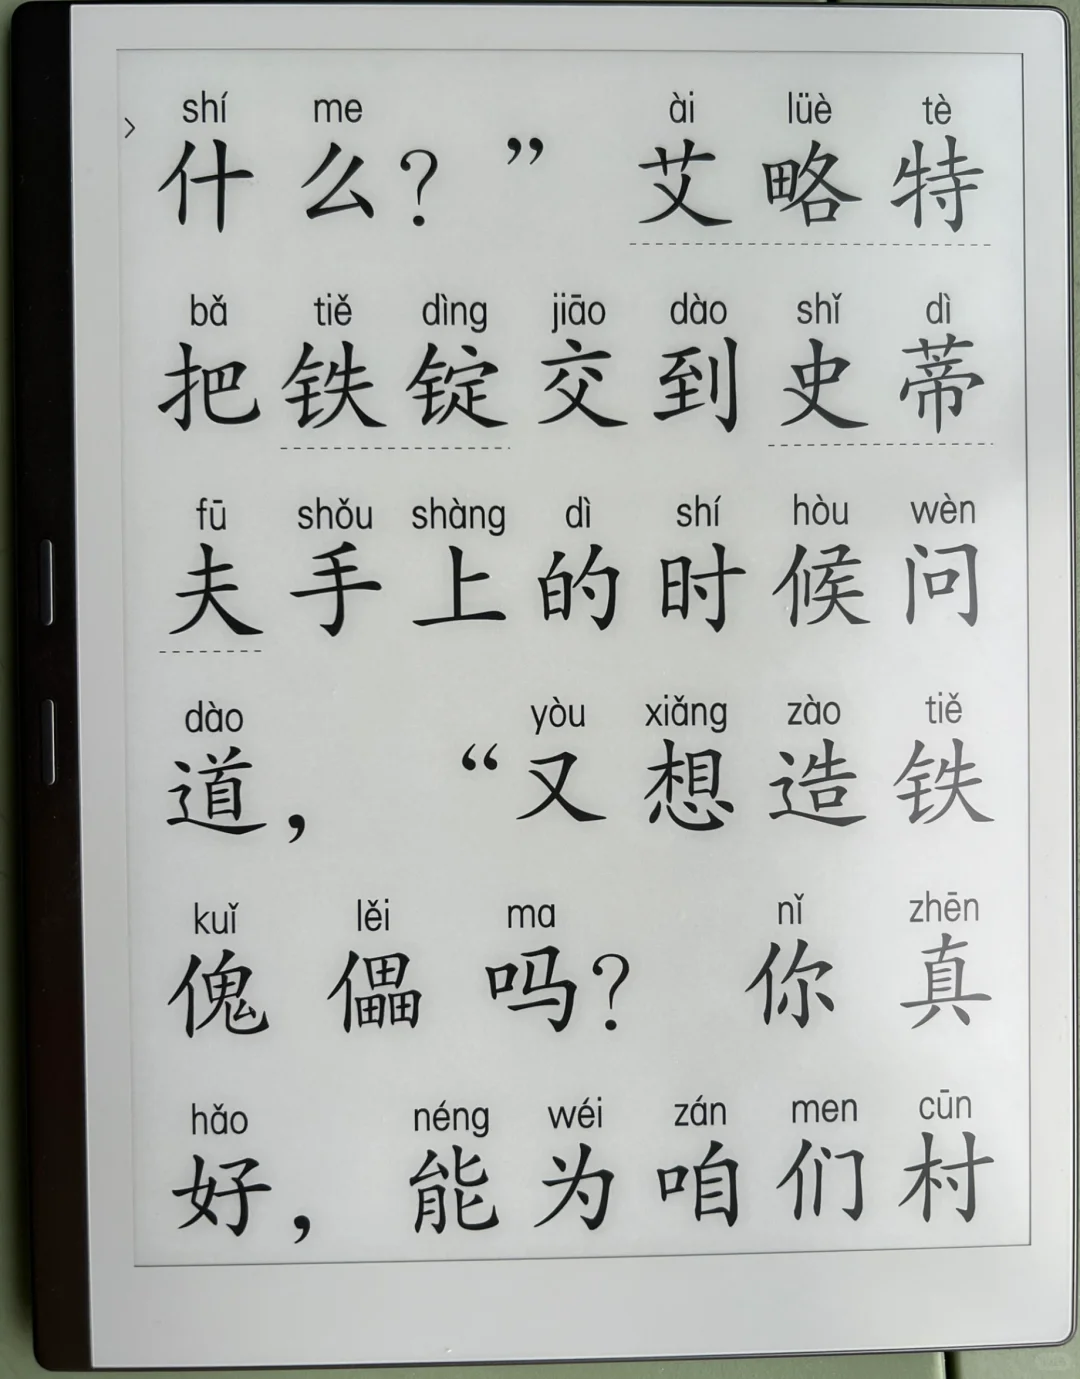 shí me ài lüè tè
什么？” 艾略特
bǎ tiě dìng jiāo dào shǐ dì
把铁锭交到史蒂
fū shǒu shàng dì shí hòu wèn
夫手上的时候问
dào yòu xiǎng zào tiě
道，“又想造铁
kuǐ lěi ma nǐ zhēn
傀儡吗？你真
hǎo néng wéi zán men cūn
好，能为咱们村